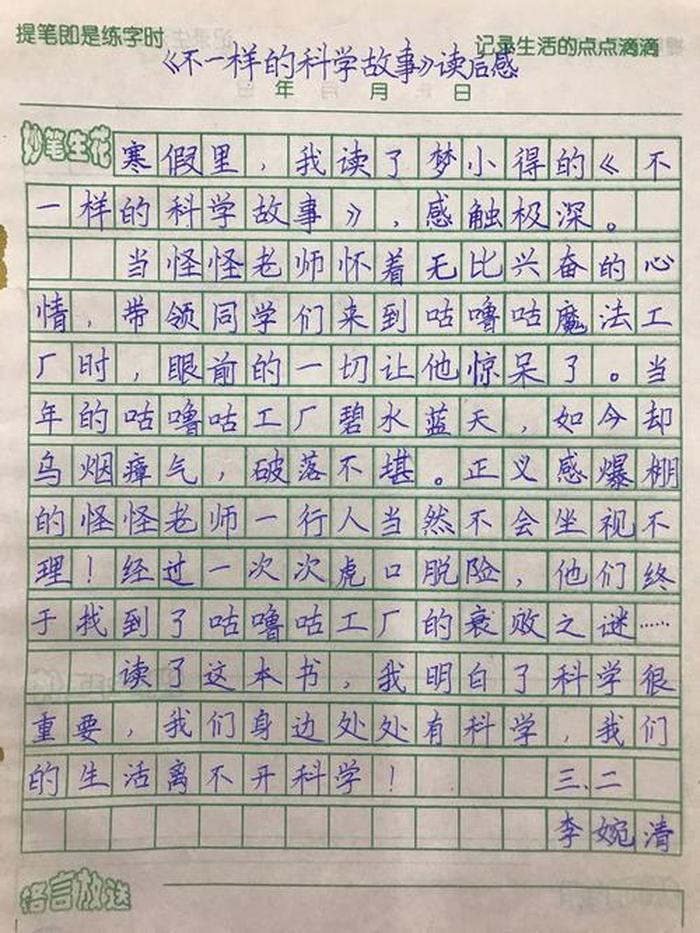 提笔即是练字时
记录生活的点点滴滴
《不一样的科学故事》读后感
年 月 日
妙笔生花
寒假里，我读了梦小得的《不
一样的科学故事》，感触极深。
当怪怪老师怀着无比兴奋的心
情，带领同学们来到咕噜咕魔法工
厂时，眼前的一切让他惊呆了。当
年的咕噜咕工厂碧水蓝天，如今却
乌烟瘴气，破落不堪。正义感爆棚
的怪怪老师一行人当然不会坐视不
理！经过一次次虎口脱险，他们终
于找到了咕噜咕工厂的衰败之谜……
读了这本书，我明白了科学很
重要，我们身边处处有科学，我们
的生活离不开科学！ 三.二
李婉清
语言放送